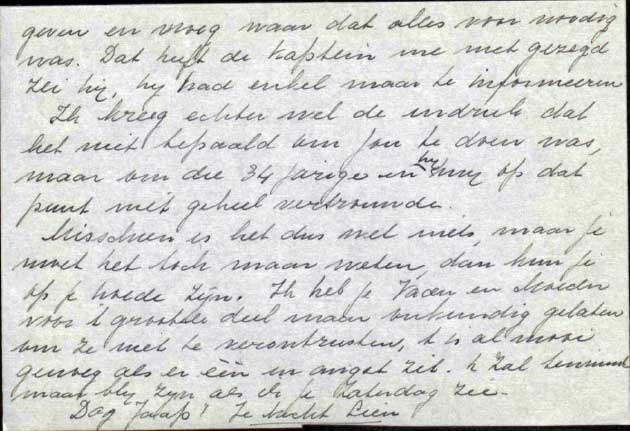 geven en vroeg waar dat alles voor noodig
was. Dat heft de kaptein me niet gezegd
zei hij, hij had enkel maar te informeeren
Ik kreeg echter wel de indruk dat
het niet bepaald om jou te doen was,
maar om die 34 jarige en hij mij op dat
punt niet geheel vertrouwde.
Misschien is het dus wel niets, maar je
moet het toch maar weten, dan kun je
op je hoede zijn. Ik heb je Vader en Moeder
voor 't grootste deel maar onkundig gelaten
om ze niet te verontrusten, 't is al mooi
genoeg als er één in angst zit. k Zal
maar blij zijn als ik je Zaterdag zie.
Dag Jaap! Je Lien